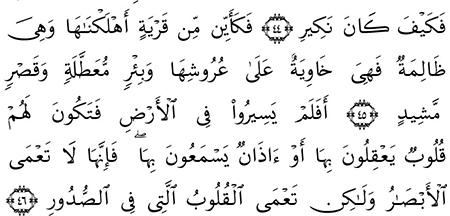 فَكَيْفَ كَانَ نَكِيرِ ﴿٤٤﴾ فَكَأَيِّن مِّن قَرْيَةٍ أَهْلَكْنَـٰهَا وَهِىَ
ظَالِمَةٌ فَهِىَ خَاوِيَةٌ عَلَىٰ عُرُوشِهَا وَبِئْرٍ مُّعَطَّلَةٍ وَقَصْرٍ
مَّشِيدٍ ﴿٤٥﴾ أَفَلَمْ يَسِيرُوا۟ فِى ٱلْأَرْضِ فَتَكُونَ لَهُمْ
قُلُوبٌ يَعْقِلُونَ بِهَآ أَوْ ءَاذَانٌ يَسْمَعُونَ بِهَا ۖ فَإِنَّهَا لَا تَعْمَى
ٱلْأَبْصَـٰرُ وَلَـٰكِن تَعْمَى ٱلْقُلُوبُ ٱلَّتِى فِى ٱلصُّدُورِ ﴿٤٦﴾